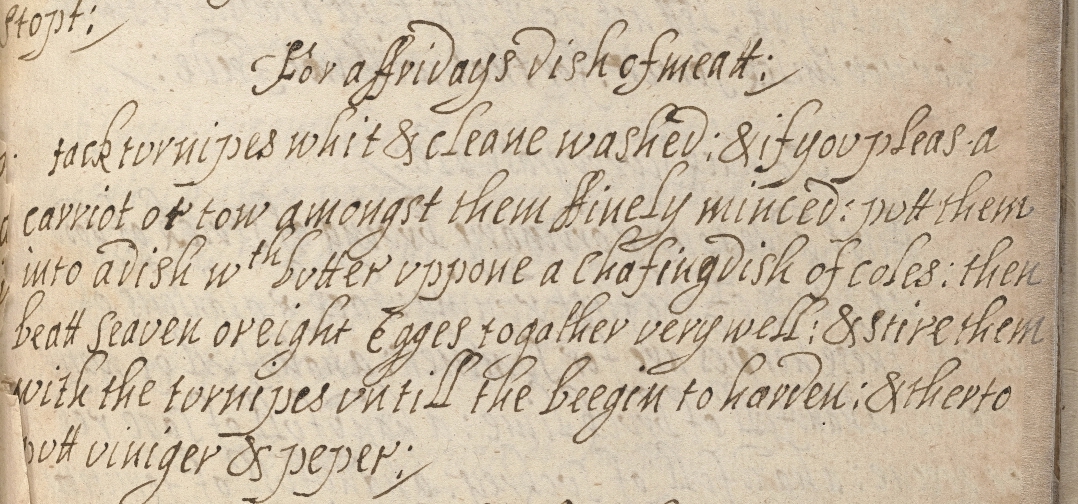 stopt;
For a ffridays dish of meatt:
tack turnipes whit & cleane washed; & if you pleas a
carriot or tow amongst them ffinely minced: putt them
into a dish wth butter uppone a chafing dish of coles: then
beatt seaven or eight Egges togather very well; & stire them
with the turnipes untill the beegin to harden; & therto
putt viniger & peper;